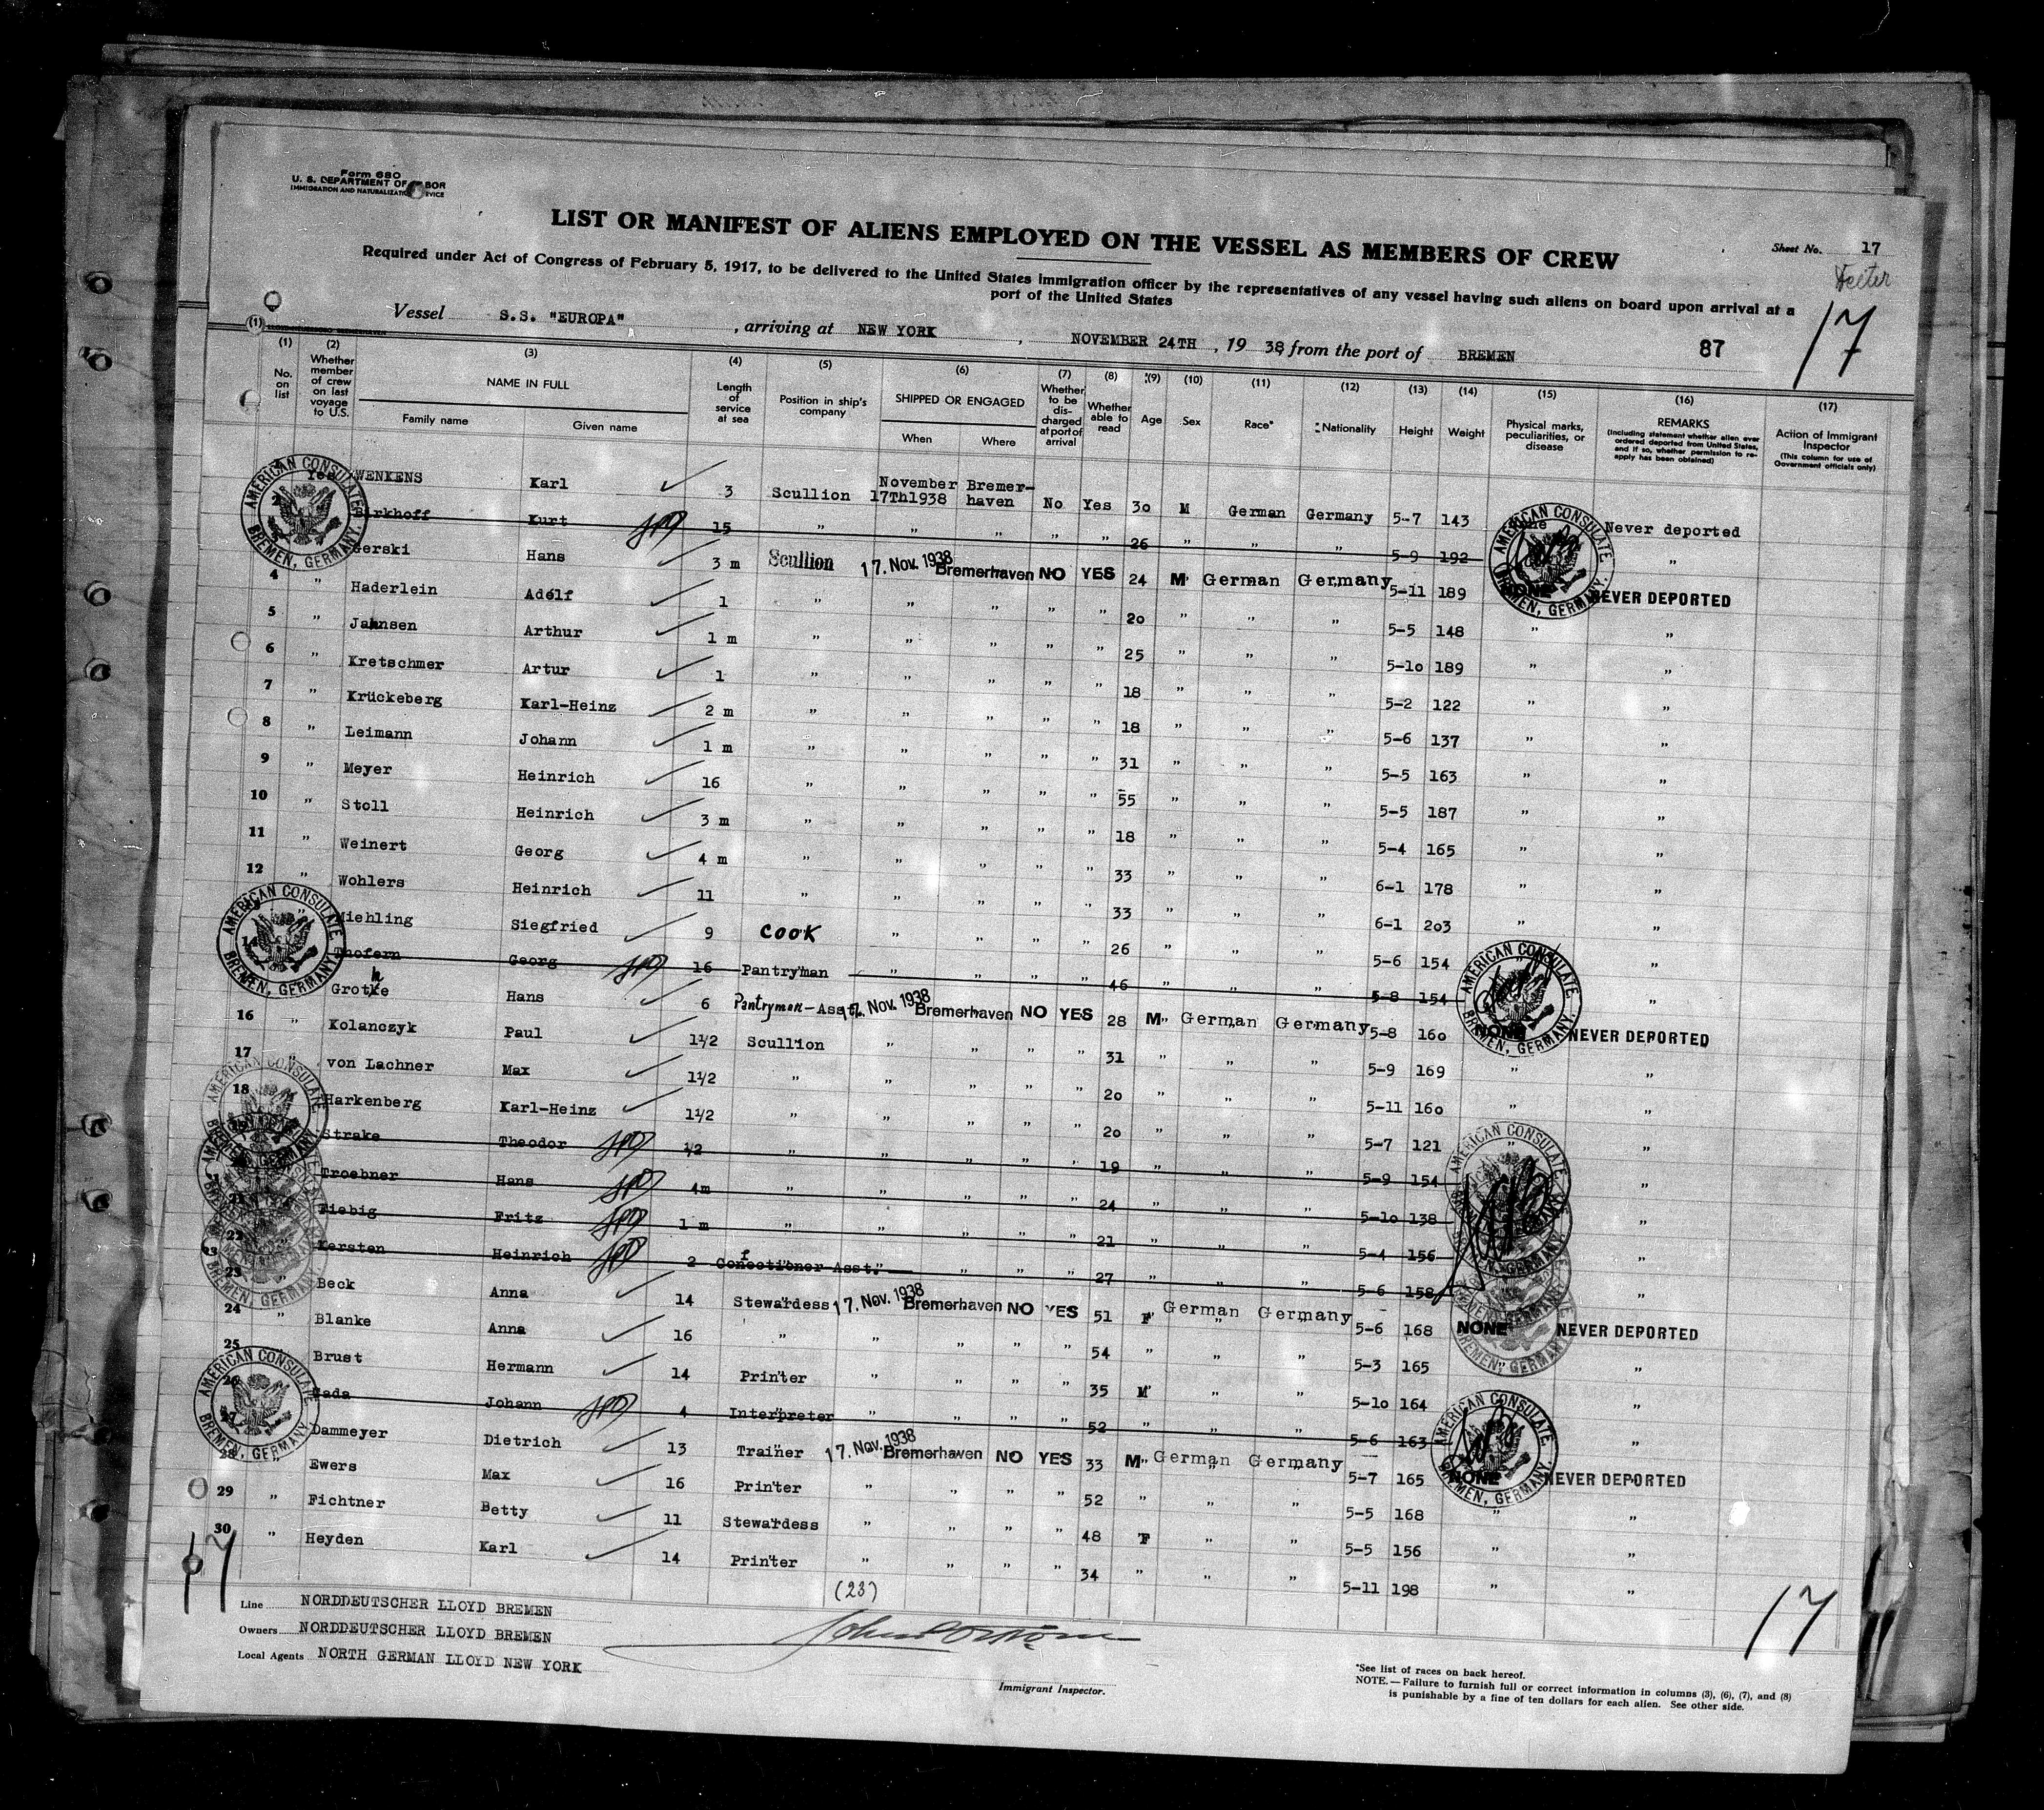 Form 680
U. S. DEPARTMENT OF LABOR
IMMIGRATION AND NATURALIZATION SERVICE
LIST OR MANIFEST OF ALIENS EMPLOYED ON THE VESSEL AS MEMBERS OF CREW
Sheet No. 17
Required under Act of Congress of February 5, 1917, to be delivered to the United States immigration officer by the representatives of any vessel having such aliens on board upon arrival at a
port of the United States
17
Vessel S.S. "EUROPA", arriving at NEW YORK, NOVEMBER 24TH, 1938, from the port of BREMEN 87
(1) No. on list
(2) Whether member of crew on last voyage to U.S.
(3) NAME IN FULL Family name Given name
(4) Length of service at sea
(5) Position in ship's company
(6) SHIPPED OR ENGAGED When Where
(7) Whether to be discharged at port of arrival
(8) Whether able to read
(9) Age
(10) Sex
(11) Race*
(12) Nationality
(13) Height
(14) Weight
(15) Physical marks, peculiarities, or disease
(16) REMARKS (Including statement whether alien ever ordered deported from United States, and if so, whether permission to reapply has been obtained)
(17) Action of Immigrant Inspector (This column for use of Government officials only)
Yes WENKENS Karl 3 Scullion November 17Th1938 Bremerhaven No Yes 30 M German Germany 5-7 143 None Never deported
2 Birkhoff Kurt 15 " " " " " 26 " " " 5-9 192 "
Gerski Hans 3 m Scullion 17. Nov. 1938 Bremerhaven NO YES 24 M German Germany 5-11 189 NONE NEVER DEPORTED
4 " Haderlein Adolf 1 " " " " " 20 " " " 5-5 148 " "
5 " Jahnsen Arthur 1 m " " " " " 25 " " " 5-10 189 " "
6 " Kretschmer Artur 1 " " " " " 18 " " " 5-2 122 " "
7 " Krückeberg Karl-Heinz 2 m " " " " " 18 " " " 5-6 137 " "
8 " Leimann Johann 1 m " " " " " 31 " " " 5-5 163 " "
9 " Meyer Heinrich 16 " " " " " 55 " " " 5-5 187 " "
10 " Stoll Heinrich 3 m " " " " " 18 " " " 5-4 165 " "
11 " Weinert Georg 4 m " " " " " 33 " " " 6-1 178 " "
12 " Wohlers Heinrich 11 " " " " " 33 " " " 6-1 203 " "
" Miehling Siegfried 9 COOK " " " " 26 " " " 5-6 154 " "
14 Thofern Georg 16 Pantryman " " " " 46 " " " 5-8 154 "
Grothe Hans 6 Pantryman-Asst. 17. Nov. 1938 Bremerhaven NO YES 28 M German Germany 5-8 160 NONE NEVER DEPORTED
16 " Kolanczyk Paul 1 1/2 Scullion " " " " 31 " " " 5-9 169 " "
17 " von Lachner Max 1 1/2 " " " " " 20 " " " 5-11 160 " "
18 Harkenberg Karl-Heinz 1 1/2 " " " " " 20 " " " 5-7 121 " "
Strake Theodor 1/2 " " " " " 19 " " " 5-9 154 "
Troebner Hans 4m " " " " " 24 " " " 5-10 138 "
21 Fiebig Fritz 1 m " " " " " 21 " " " 5-4 156 "
22 Kersten Heinrich 2 Confectioner Asst. " " " " 27 " " " 5-6 158 "
23 " Beck Anna 14 Stewardess 17. Nov. 1938 Bremerhaven NO YES 51 F German Germany 5-6 168 NONE NEVER DEPORTED
24 " Blanke Anna 16 " " " " " 54 " " " 5-3 165 " "
25 Brust Hermann 14 Printer " " " " 35 M " " 5-10 164 "
26 Johann 4 Interpreter " " " " 52 " " " 5-6 163 "
27 Dammeyer Dietrich 13 Trainer 17. Nov. 1938 Bremerhaven NO YES 33 M German Germany 5-7 165 NONE NEVER DEPORTED
28 " Ewers Max 16 Printer " " " " 52 " " " 5-5 168 " "
29 " Fichtner Betty 11 Stewardess " " " " 48 F " " 5-5 156 " "
30 " Heyden Karl 14 Printer " " " " 34 " " " 5-11 198 " "
AMERICAN CONSULATE BREMEN, GERMANY.
17
(23)
17
Line NORDDEUTSCHER LLOYD BREMEN
Owners NORDDEUTSCHER LLOYD BREMEN
Local Agents NORTH GERMAN LLOYD NEW YORK
Immigrant Inspector.
*See list of races on back hereof.
NOTE.—Failure to furnish full or correct information in columns (3), (6), (7), and (8)
is punishable by a fine of ten dollars for each alien. See other side.